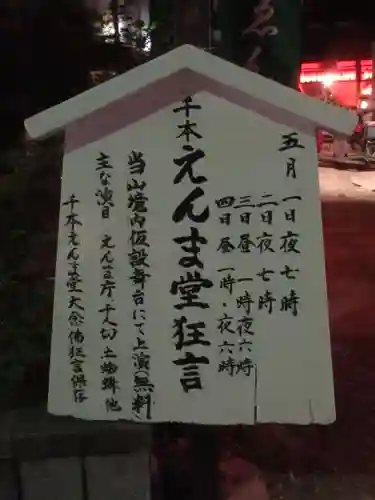 五月 一日夜七時
二日夜七時
三日昼一時夜六時
四日昼一時・夜六時
千本えんま堂狂言
当山境内仮設舞台にて上演(無料)
主な演目 えんま庁・千人切・土蜘蛛 他
千本えんま堂大念佛狂言保存